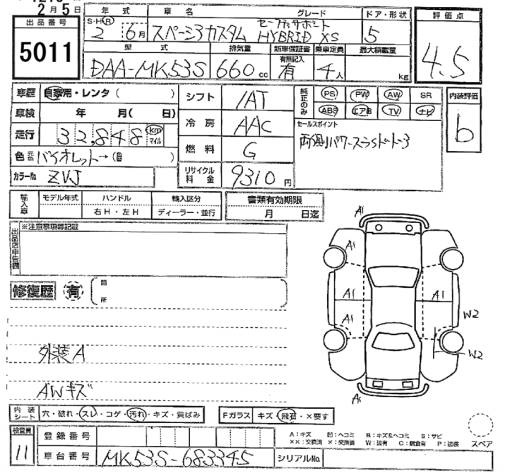 2月5日
出品番号
5011
年式
車名
グレード
ドア・形状
S・H(R)
2 6月
スペーシアカスタム
セーフティサポート
HYBRID XS
5
型式
排気量
新車保証書
乗車定員
最大積載量
DAA-MK53S
660cc
有無記入
有
4人
kg
評価点
4.5
車歴
自家用・レンタ( )
車検
年 月( 日)
走行
32,848 km マイル
色
バイオレット→(色 )
カラーNo
ZVJ
シフト
IAT
冷房
AAC
燃料
G
リサイクル料金
9310円
純正のみ
PS PW AW SR
ABS エアB TV ナビ
セールスポイント
両側パワースライドドア
内装評価
b
輸入車
モデル年式
ハンドル
輸入区分
書類有効期限
右H・左H
ディーラー・並行
月 日迄
※注意事項等記載
修復歴
有
箇所
外装A
AWキズ
A1
A1
A1
A1
A1
A1
W2
W2
内装シート
穴・破れ・スレ・コゲ・汚れ・キズ・異ばみ
Fガラス
キズ・飛石・×要す
検査員
11
登録番号
車台番号
MK53S-683345
シリアルNo
A：キズ
U：ヘコミ
S：サビ
スペア